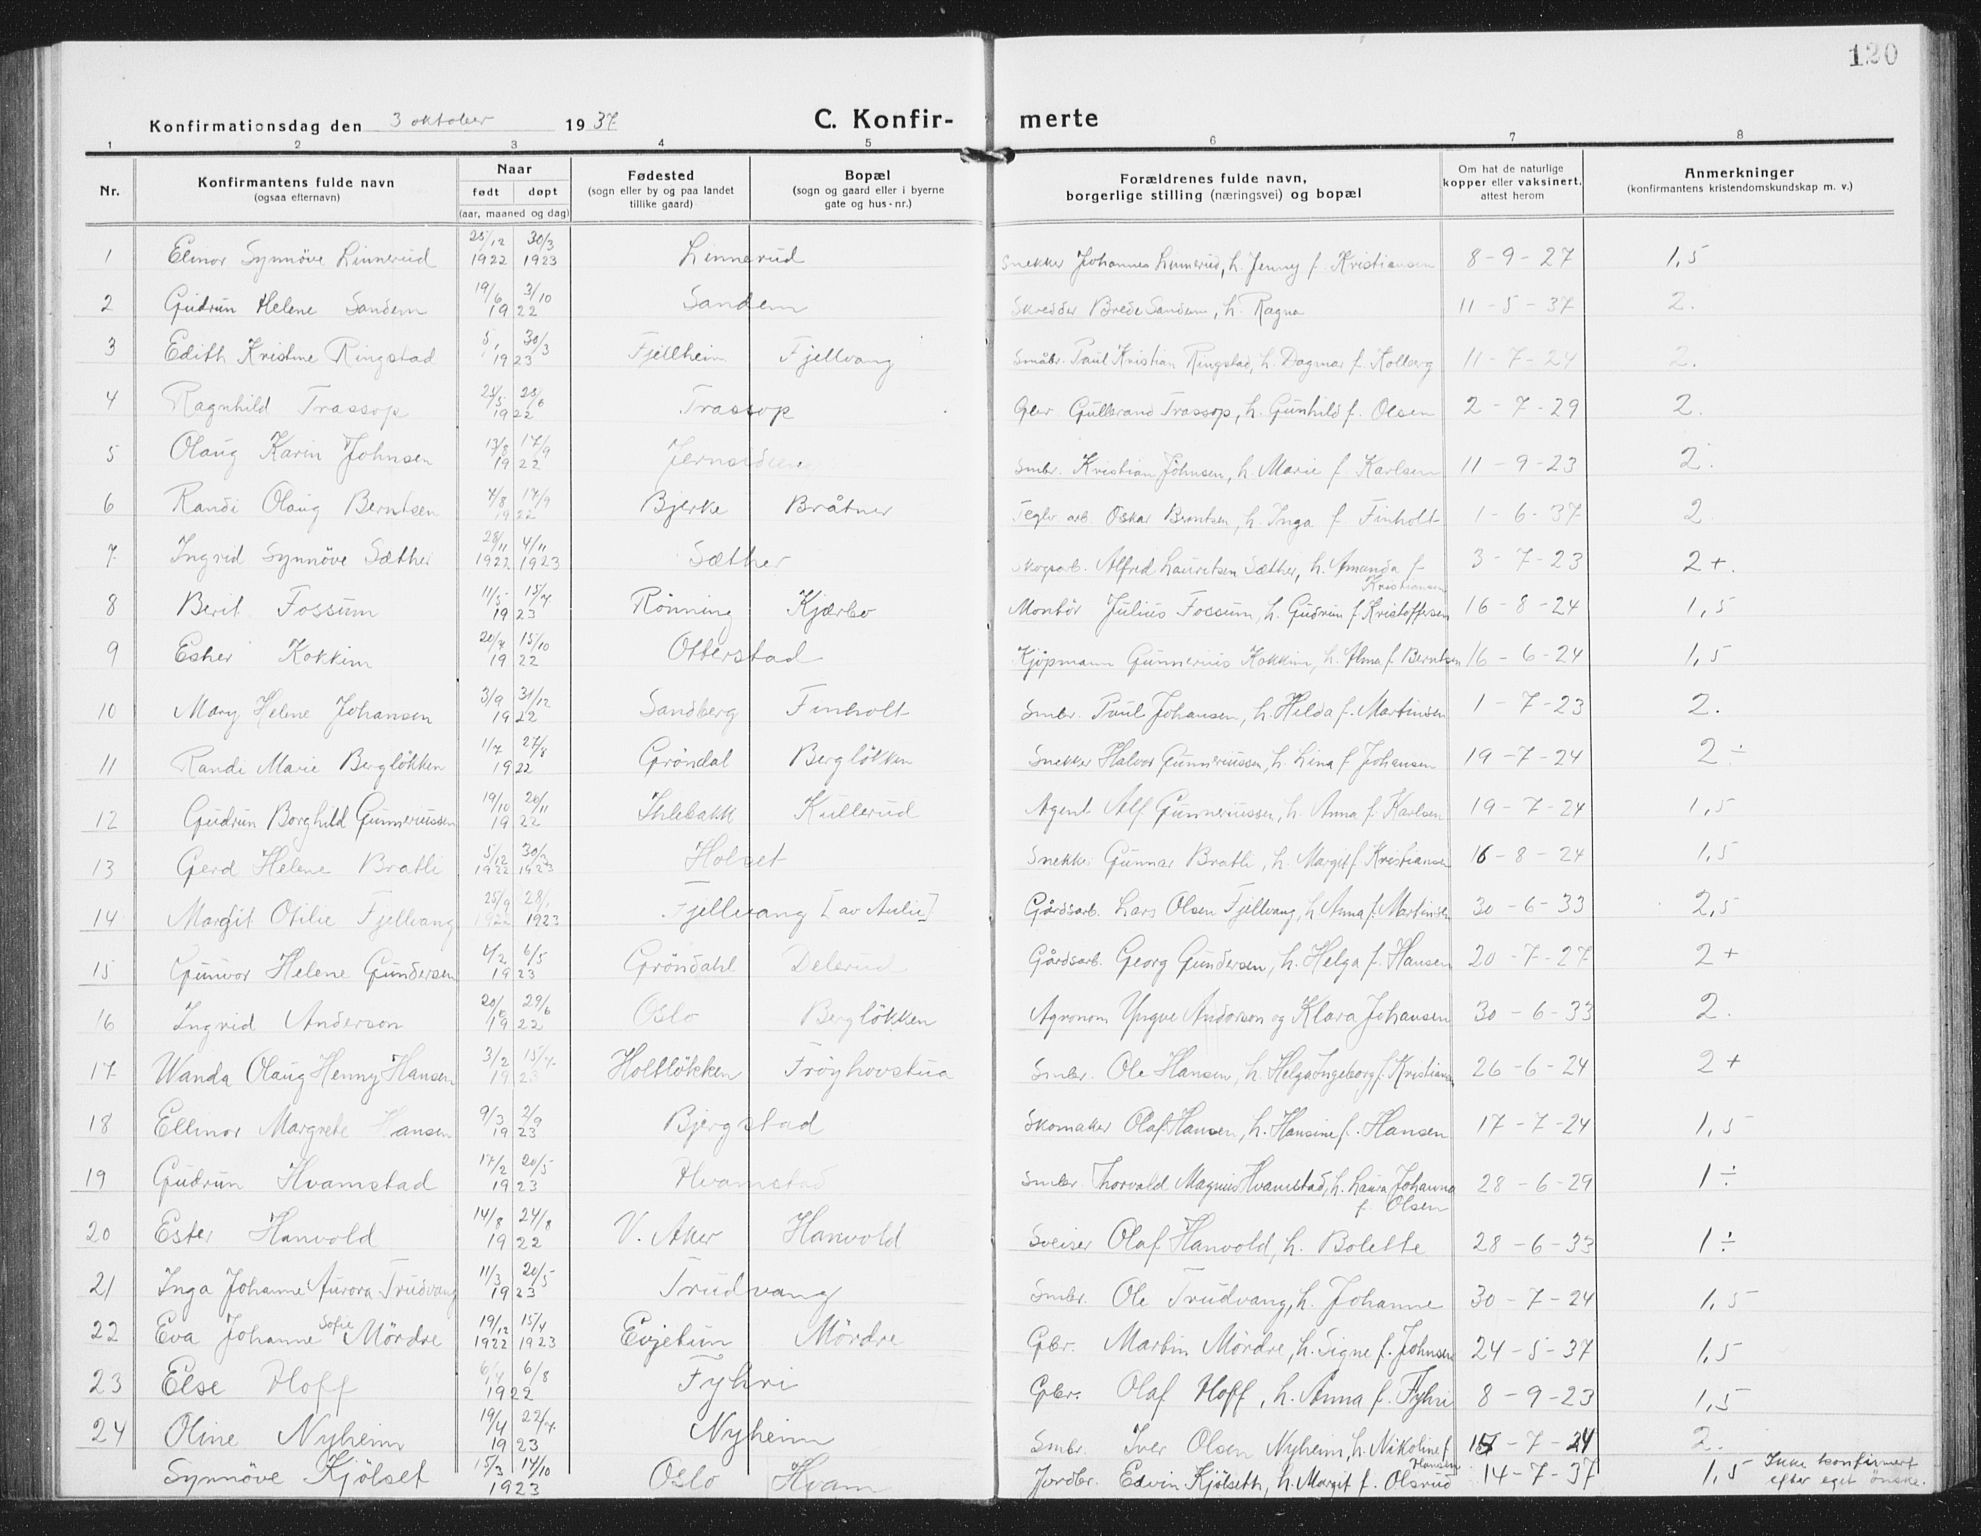 120
Konfirmationsdag den 3 oktober 1937 C. Konfir- merte
1 2 3 4 5 6 7 8
Nr. Konfirmantens fulde navn (ogsaa efternavn) Naar født døpt (aar, maaned og dag) Fødested (sogn eller by og paa landet tillike gaard) Bopæl (sogn og gaard eller i byerne gate og hus-nr.) Forældrenes fulde navn, borgerlige stilling (næringsvei) og bopæl Om hat de naturlige kopper eller vaksinert, attest herom Anmerkninger (konfirmantens kristendomskundskap m. v.)
1 Elinor Synnöve Linnerud 25/12 1922 30/3 1923 Linnerud Snekker Johannes Linnerud, h. Jenny f. Kristiansen 8-9-27 1,5
2 Gudrun Helene Sandem 19/6 3/10 1922 Sandem Skredder Brede Sandem, h. Ragna 11-5-37 2.
3 Edith Kristine Ringstad 30/3 1923 Fjellheim Fjellvang Småbr. Paul Kristian Ringstad, h. Dagmar f. Kolberg 11-7-24 2.
4 Ragnhild Trassop 25/5 25/6 1922 Trassop Gbr Gulbrand Trassop, h. Gunhild f. Olsen 2-7-29 2.
5 Olaug Karin Johnsen 13/8 17/9 1922 Smbr. Kristian Johnsen, h. Marie f. Karlsen 11-9-23 2.
6 Randi Olaug Berntsen 7/8 17/9 1922 Bjerke Bråtner Teglv. arb. Oskar Berntsen, h. Inga f. Finholt 1-6-37 2.
7 Ingrid Synnöve Sæther 28/11 1922 4/11 1923 Sæther Skogsarb. Alfred Lauritsen Sæther, h. Amanda f. Kristiansen 3-7-23 2+.
8 Berit Fossum 11/5 15/7 1923 Rönning Kjærbo Montör Julius Fossum, h. Gudrun f. Kristoffersen 16-8-24 1,5
9 Esther Kokkim 20/7 15/10 1922 Otterstad Kjöpmann Gunnerius Kokkim, h. Alma f. Berntsen 16-6-24 1,5
10 Mary Helene Johansen 3/9 31/12 1922 Sandberg Finholt Smbr. Paul Johansen, h. Hilda f. Martinsen 1-7-23 2.
11 Randi Marie Berglökken 1/7 27/8 1922 Gröndal Berglökken Snekker Halvor Gunneriussen, h. Lina f. Johansen 19-7-24 2÷
12 Gudrun Borghild Gunneriussen 19/10 20/11 1922 Ihlebakk Kullerud Agent Alf Gunneriussen, h. Anna f. Karlsen 19-7-24 1,5
13 Gerd Helene Bratli 5/12 1922 30/3 1923 Holset Snekker Gunnar Bratli, h. Margit f. Kristiansen 16-8-24 1,5
14 Margit Otilie Fjellvang 25/9 1922 28/1 1923 Fjellvang [av Aulie] Gårdsarb. Lars Olsen Fjellvang, h. Anna f. Martinsen 30-6-33 2,5
15 Gunvor Helene Gundersen 4/2 6/5 1923 Gröndahl Delerud Gårdsarb. Georg Gundersen, h. Helga f. Hansen 20-7-27 2+
16 Ingrid Anderson 20/6 29/6 1922 Oslo Berglökken Agronom Yngve Anderson og Klara Johansen 30-6-33 2.
17 Wanda Olaug Henny Hansen 3/2 15/4 1923 Holtlökken Fröyhovstua Smbr. Ole Hansen, h. Helga Ingeborg f. Kristiansen 26-6-24 2+
18 Ellinor Margrete Hansen 9/3 2/9 1923 Bjergstad Skomaker Olaf Hansen, h. Hansine f. Hansen 17-7-24 1,5
19 Gudrun Hvamstad 17/2 20/5 1923 Hvamstad Smbr. Thorvald Magnus Hvamstad, h. Laura Johanna f. Olsen 28-6-29 1÷
20 Ester Hanvold 14/8 24/8 1922 V. Aker Hanvold Sveiser Olaf Hanvold, h. Bolette 28-6-33 1÷
21 Inga Johanne Aurora Trudvang 11/3 20/5 1923 Trudvang Smbr. Ole Trudvang, h. Johanne 30-7-24 1,5
22 Eva Johanne Sofie Mördre 19/12 1922 15/4 1923 Evjetun Mördre Gbr. Martin Mördre, h. Signe f. Johnsen 24-5-37 1,5
23 Else Hoff 6/8 1922 Fyhri Gbr. Olaf Hoff, h. Anna f. Fyhri 8-9-23 1,5
24 Oline Nyheim 19/4 22/7 1923 Nyheim Smbr. Iver Olsen Nyheim, h. Nikoline f. Hansen -7-24 2.
Synnöve Kjölset 15/3 14/10 1923 Oslo Hvam Jordbr. Edvin Kjölseth, h. Margit f. Olsrud 14-7-37 1,5 Ikke konfirmert efter eget önske.